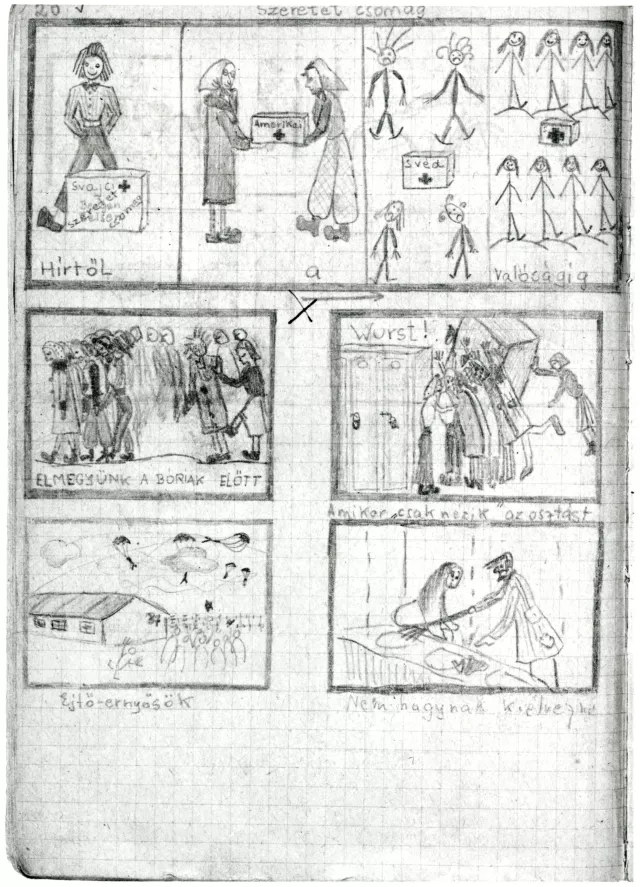 20
Szeretet csomag
Svájci
Szeretet
Amerikai
Svéd
Hirtől a valóságig
Wurst!
ELMEGYÜNK A BORIAK ELŐTT
Amikor "csak nézik" az osztást
Ejtő-ernyősök
Nem hagynak kiélvezni